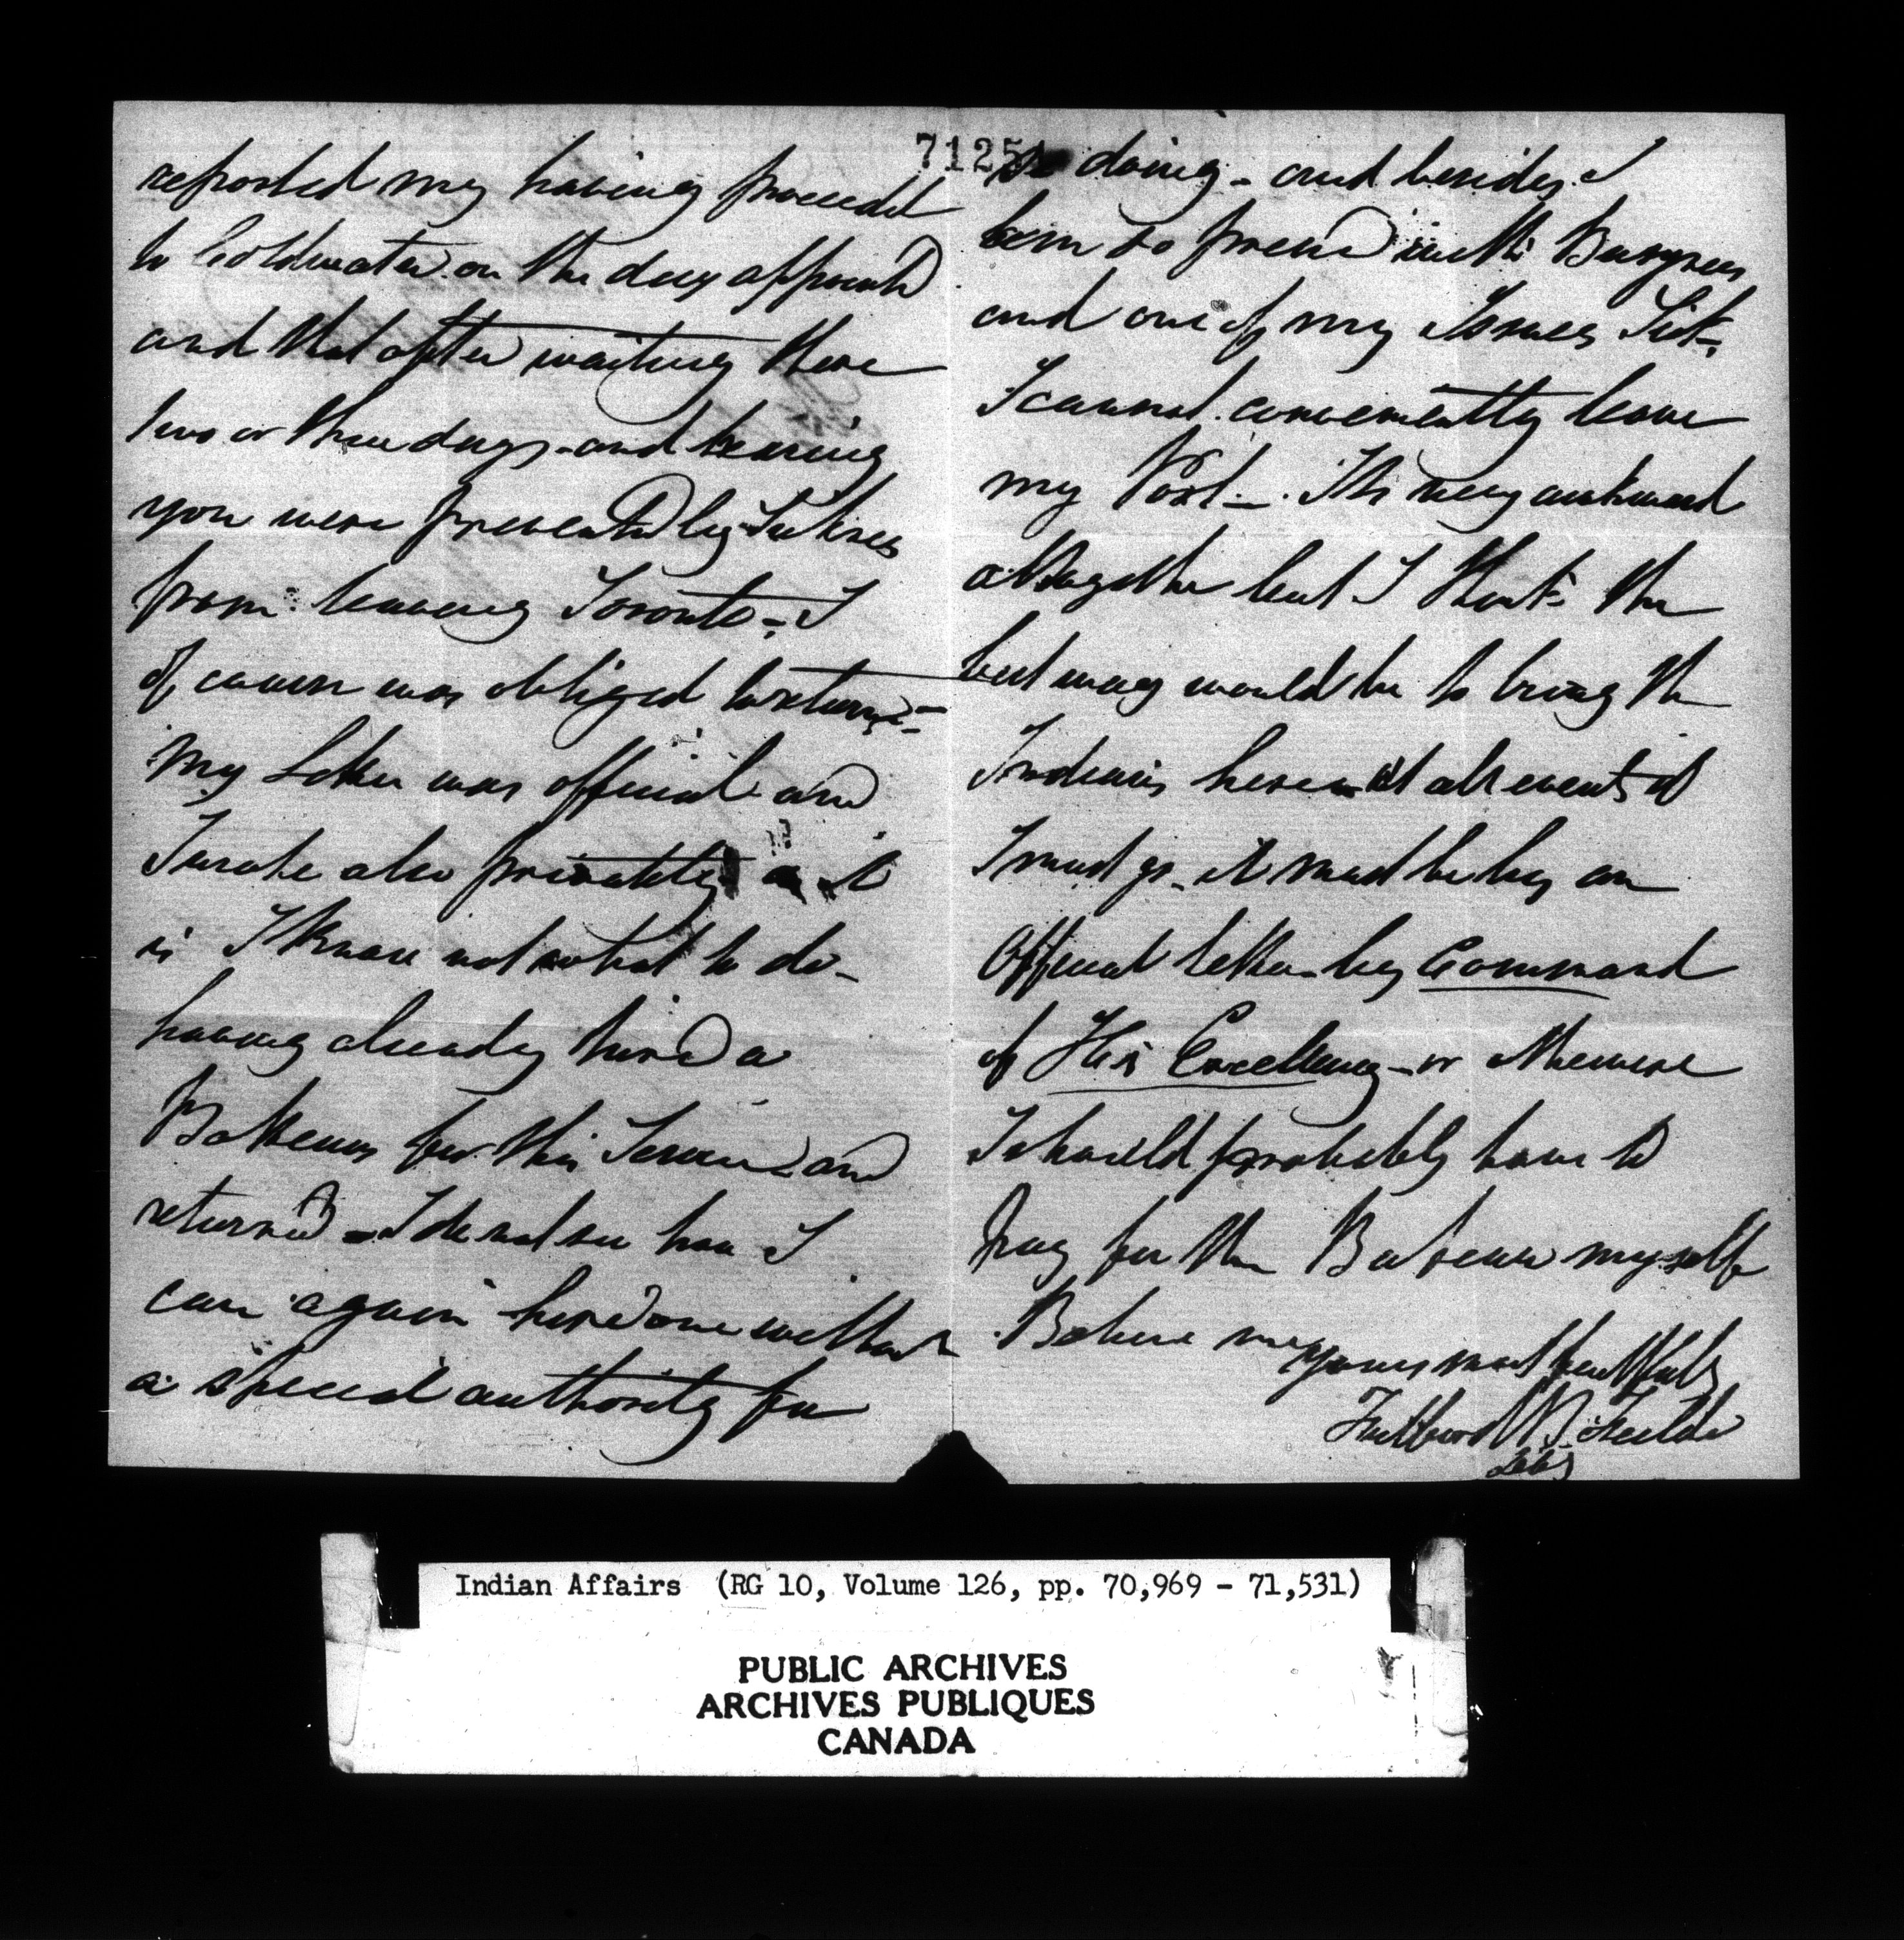 71251
reported my having proceeded
to Coldwater on the day appointed
and that after waiting there
two or three days - and hearing
you were prevented by Sickness
from leaving Toronto - I
of course was obliged to return -
My Letter was official and
I wrote also privately as it
is I know not what to do -
having already hired a
Batteau for this Service and
returned - I do not see how I
can again hire one without
a special authority for
so doing - and besides I
am so pressed with Business
and one of my Sick -
I cannot conveniently leave
my Post - It is very awkward
altogether but I think the
best way would be to bring the
Indians here - at all events if
I must go - it must be by an
Official letter by Command
of His Excellency - or otherwise
I should probably have to
pay for the Bateau myself
Believe me
yours most faithfully
Indian Affairs (RG 10, Volume 126, pp. 70,969 - 71,531)
PUBLIC ARCHIVES
ARCHIVES PUBLIQUES
CANADA